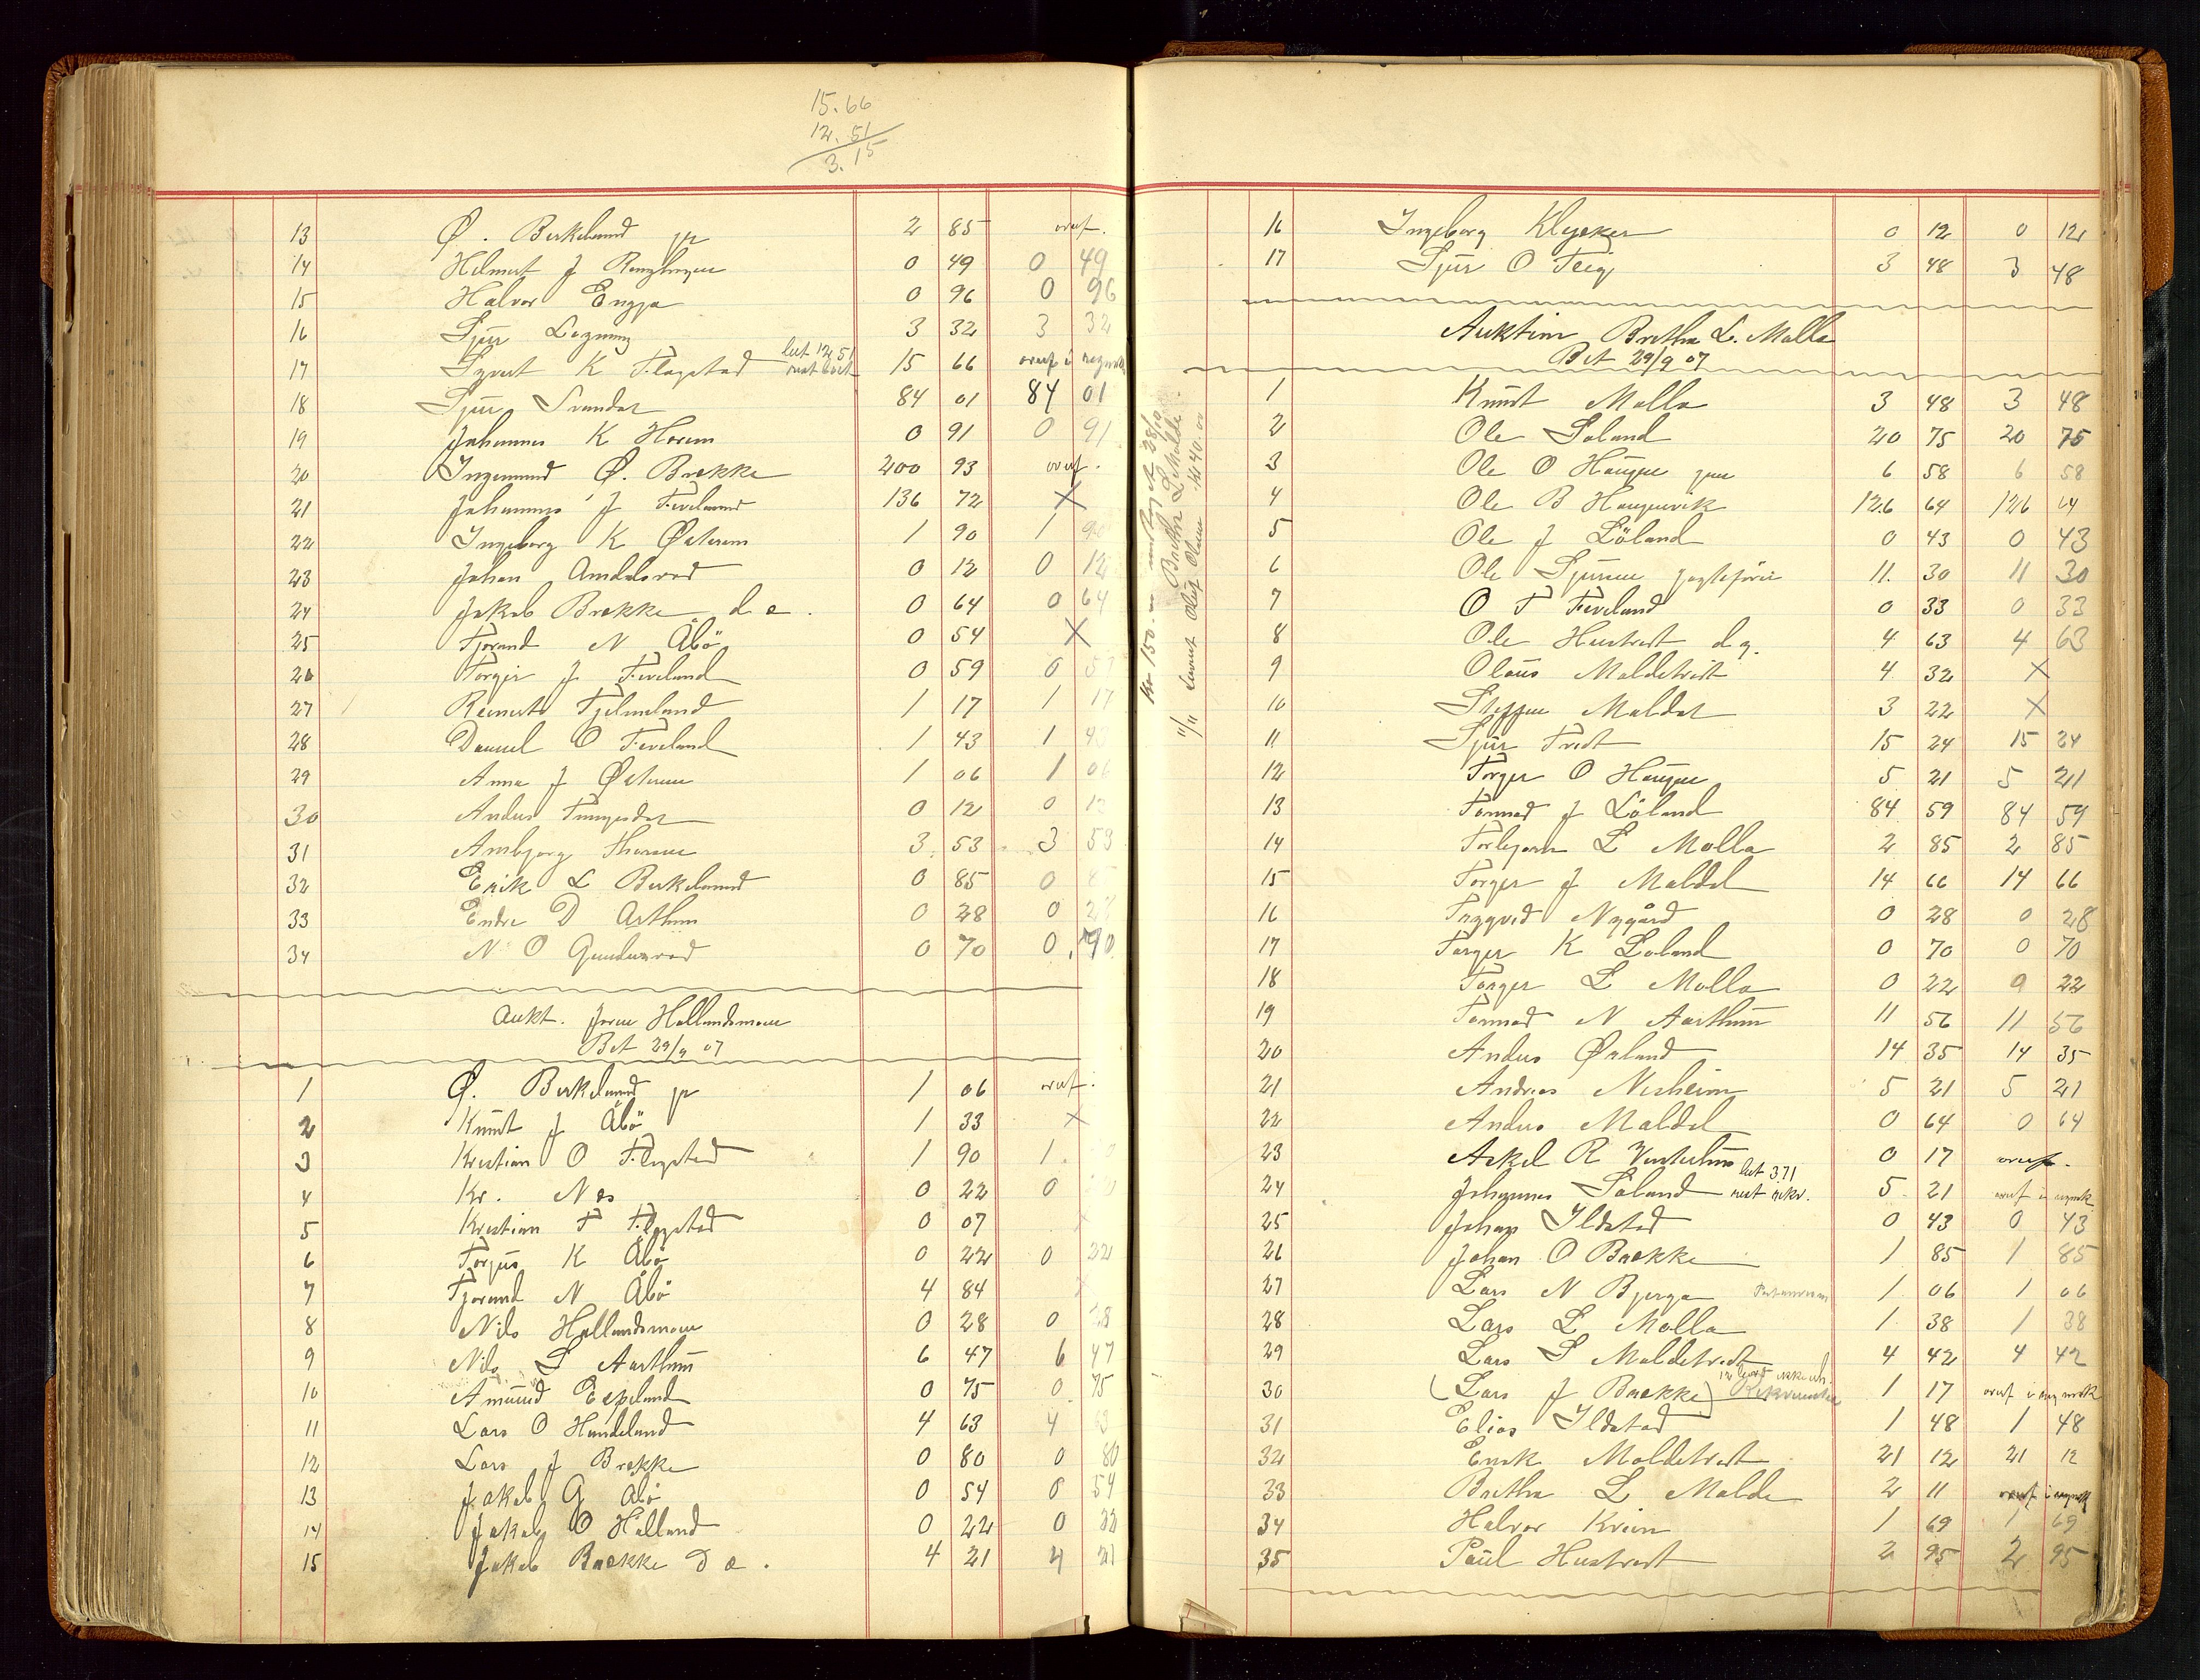 15.66
12.51
3.15
13 Ø. Birkeland jr 2 85 overf.
14 Helmert J 0 49 0 49
15 Halvor Engja 0 96 0 96
16 Sjur 3 32 3 32
17 Syvert K Flogstad bet 12 51 rest 15 66 overf i
18 Sjur Svandal 84 01 84 01
19 Johannes K Horem 0 91 0 91
20 Ingemund Ø. Brekke 200 93 overf.
21 Johannes J Fivelmed 136 72 X
22 Ingeborg K Østrem 1 90 1 90
23 Johan Amdalsrød 0 12 0 12
24 Jakob Brekke d e. 0 64 0 64
25 Tjorand N Åbö 0 54 X
26 Torger J Fiveland 0 59 0 59
27 Reinert Tjelmeland 1 17 1 17
28 Daniel O Fiveland 1 43 1 43
29 Anna J Østrem 1 06 1 06
30 Anders Tungesdal 0 12 0 12
31 Ambjorg Thorsen 3 53 3 53
32 Erik L Birkeland 0 85 0 85
33 Endre D Arthun 0 28 0 28
34 N O Gundersrød 0 70 0 70
Aukt. Jorm Hallandsmoen
Bet 29/9 07
1 Ø. Birkeland jr 1 06 overf.
2 Knut J Åbö 1 33 X
3 Kristian O Flogstad 1 90 1
4 Kr. Nes 0 22 0
5 Kristian T Flogstad 0 07 X
6 Torjus K Åbö 0 22 0 22
7 Tjorand N Åbö 4 84 X
8 Nils Hallandsmoen 0 28 0 28
9 Nils S Aarthun 6 47 6 47
10 Amund Espeland 0 75 0 75
11 Lars O Handeland 4 63 4 63
12 Lars J Brekke 0 80 0 80
13 Jakob G Åbö 0 54 0 54
14 Jakob O Halland 0 22 0 22
15 Jakob Brekke D e. 4 21 4 21
Kr 150.
Brithe L Malde
16 Ingeborg Klyeker 0 12 0 12
17 Sjur O Teig 3 48 3 48
Auktion Brithe L. Malle
Bet 29/9 07
1 Knut Malla 3 48 3 48
2 Ole Soland 20 75 20 75
3 Ole O Haugen jun 6 58 6 58
4 Ole B Haugenvik 126 64 126 64
5 Ole J Löland 0 43 0 43
6 Ole Sjursen jagtefører 11. 30 11 30
7 O T Fiveland 0 33 0 33
8 Ole Hustvet d.y. 4 63 4 63
9 Olaus Maldetveit 4 32 X
10 Steffen Maldal 3 22 X
11 Sjur Tvedt 15 24 15 24
12 Torger O Haugen 5 21 5 21
13 Tormod J Löland 84 59 84 59
14 Torbjørn L Malla 2 85 2 85
15 Torger J Maldal 14 66 14 66
16 Trygved Nygård 0 28 0 28
17 Torger K Loland 0 70 0 70
18 Torger L Malla 0 22 0 22
19 Tormod N Aarthun 11 56 11 56
20 Anders Øvland 14 35 14 35
21 Andreas Nesheim 5 21 5 21
22 Anders Maldal 0 64 0 64
23 Askel R Vesterhus 0 17 overf.
24 Johannes Soland bet 3.71 rest 5 21 overf i
25 Johan Ildstad 0 43 0 43
26 Johan O Brekke 1 85 1 85
27 Lars N Bjerga 1 06 1 06
28 Lars L Malla 1 38 1 38
29 Lars S Maldetveit 4 42 4 42
30 (Lars J Brekke) 1 17 overf i
31 Elias Ildstad 1 48 1 48
32 Enok Maldetveit 21 12 21 12
33 Brithe L Malde 2 11 overf i
34 Halvor Kvien 1 69 1 69
35 Paul Hustveit 2 95 2 95